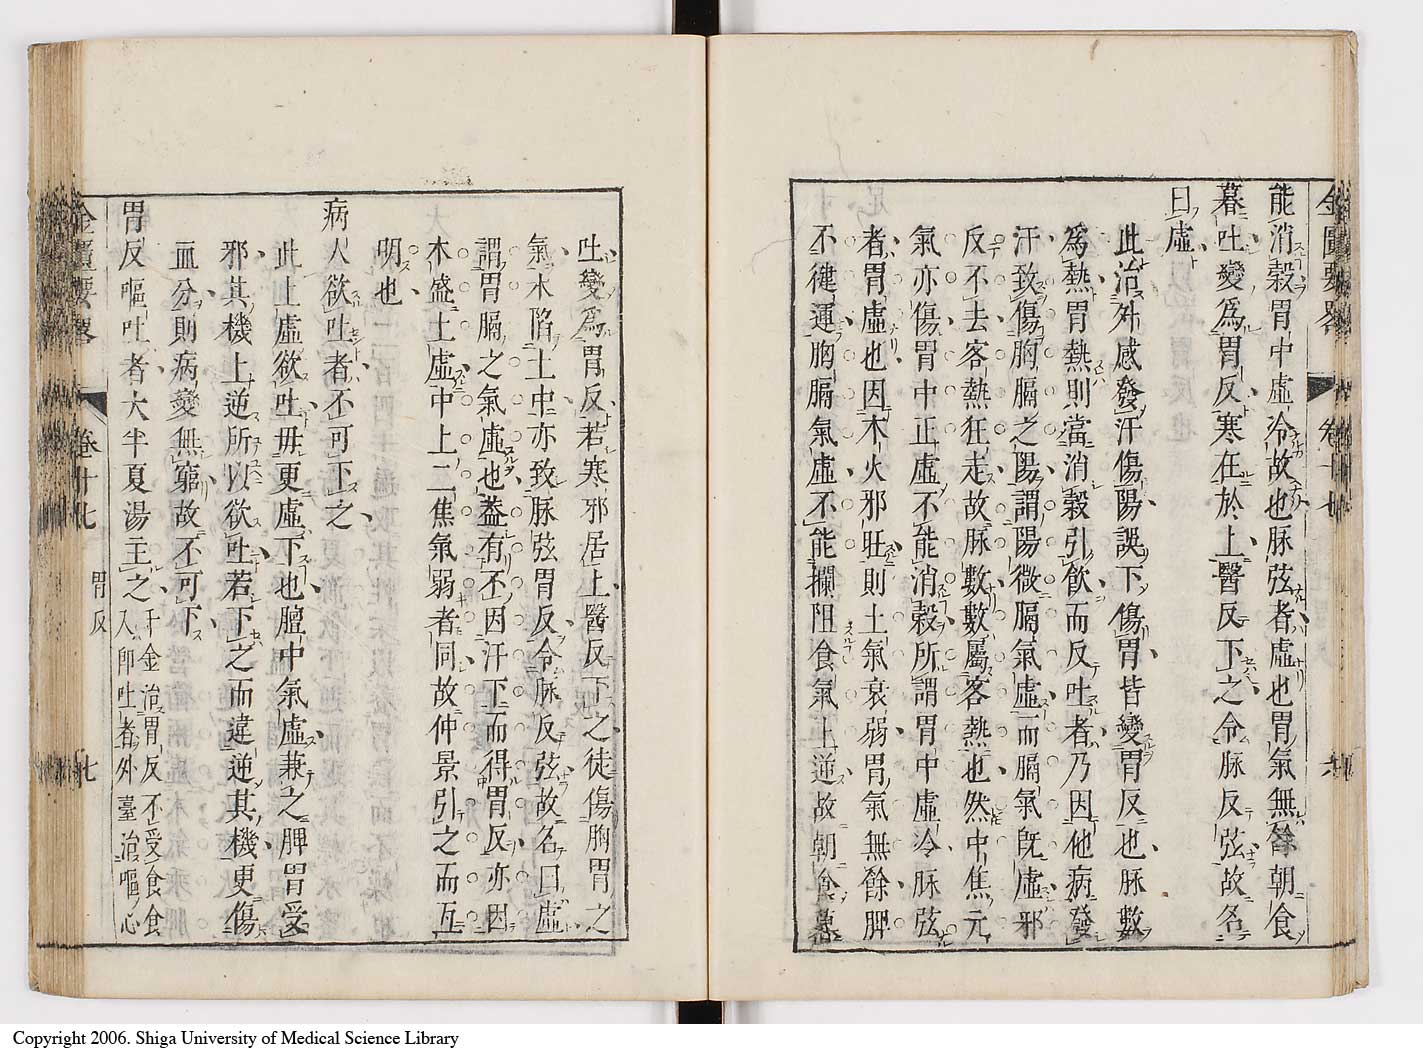 能消穀胃中虛冷故也脉弦者虛也胃氣無餘朝食
暮吐變爲胃反寒在於上醫反下之令脉反弦故名
曰虛
此治外感發汗傷陽誤下傷胃皆變胃反也脉數
爲熱胃熱則當消穀引飲而反吐者乃因他病發
汗致傷胸膈之陽謂陽微膈氣虛而膈氣旣虛邪
反不去客熱狂走故脉數數屬客熱也然中焦元
氣亦傷胃中正虛不能消穀所謂胃中虛冷脉弦
者胃虛也因木火邪旺則土氣衰弱胃氣無餘脾
不健運胸膈氣虛不能攔阻食氣上逆故朝食暮
金匱要畧 卷十七 六
吐變爲胃反若寒邪居上醫反下之徒傷胸胃之
氣木陷土中亦致脉弦胃反令脉反弦故名曰虛
謂胃膈之氣虛也蓋有不因汗下而得胃反亦因
木盛土虛中上二焦氣弱者同故仲景引之而互
明也
病人欲吐者不可下之
此上虛欲吐毋更虛下也膻中氣虛兼之脾胃受
邪其機上逆所以欲吐若下之而違逆其機更傷
血分則病變無窮故不可下
胃反嘔吐者大半夏湯主之 千金治胃反不受食食
入卽吐者外臺治嘔心
金匱要畧 卷十七 胃反 七
Copyright 2006. Shiga University of Medical Science Library